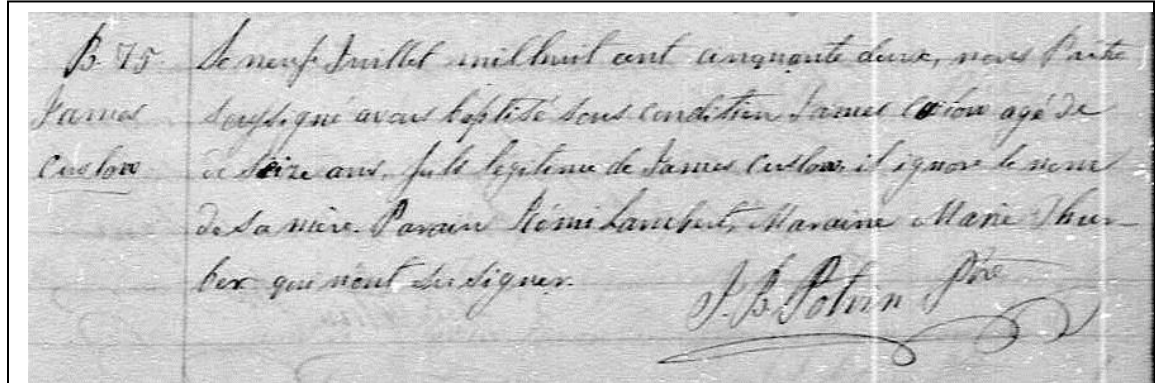 B. 75. Le neuf Juillet mil huit cent cinquante deux, nous Prêtre
James soussigné avons baptisé sous condition James agé de
Cuslow de seize ans, fils légitime de James Cuslow, il ignore le nom
de sa mère. Parain Rémi Lambert, Maraine Marie Thur-
ber qui n'ont su signer.
J. B. Potvin Ptre